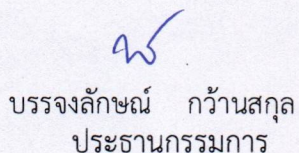 บรรจงลักษณ์ กว้านสกุล
ประธานกรรมการ